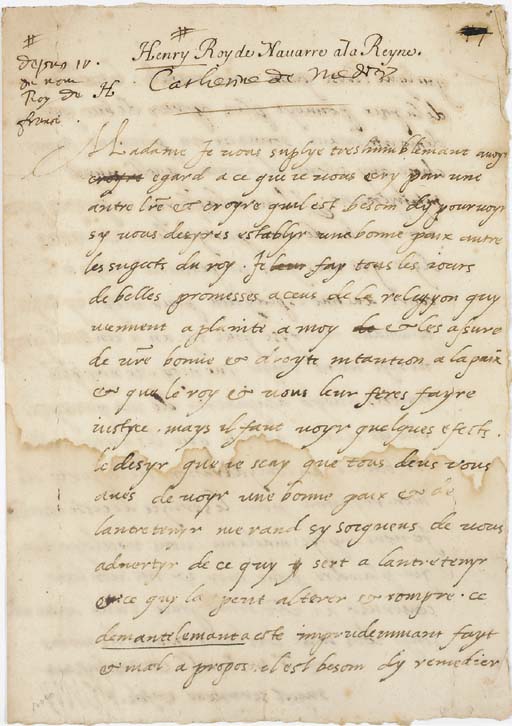 #
depuis IV.
du nom
Roy de
france.
#
Henry Roy de Navarre a la Reyne.
Catherine de Medicis
Madame Je vous suplye treshumblemant avoyr
egard a ce que ie vous ecry par une
autre lre et croyre quil est besoin dy pourvoyr
sy vous desyres establyr une bonne paix antre
les sugects du roy. Je leur fay tous les iours
de belles promesses a ceus de la religyon quy
viennent a plainte a moy et les asure
de vre bonne et droyte intantion a la paix
et que le roy et vous leur feres fayre
iustyce. mays il faut voyr quelques efects.
le desyr que ie scay que tous deus vous
aves de voyr une bonne paix et de
lantretenyr me rand sy soigneus de vous
advertyr de ce quy sert a lantretenyr
et ce quy la peut alterer et rompre. ce
demantelemant a este imprudemmant fayt
et mal a propos. il est besoin dy remedier